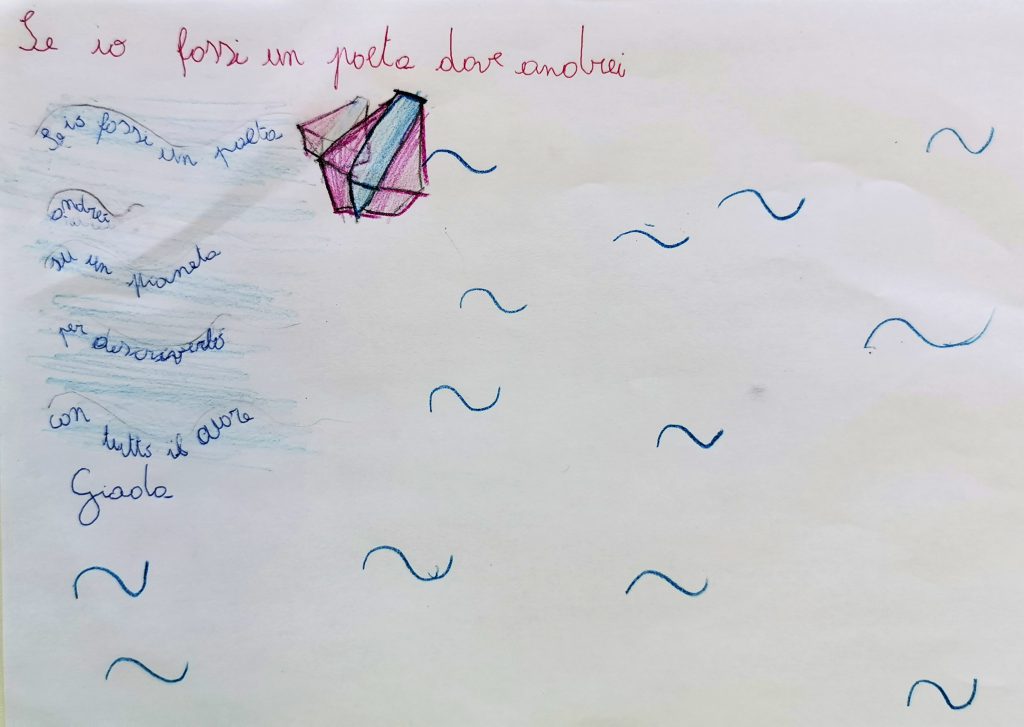 Se io fossi un poeta dove andrei
Se io fossi un poeta
andrei
su un pianeta
per descriverlo
con tutto il cuore
Giada